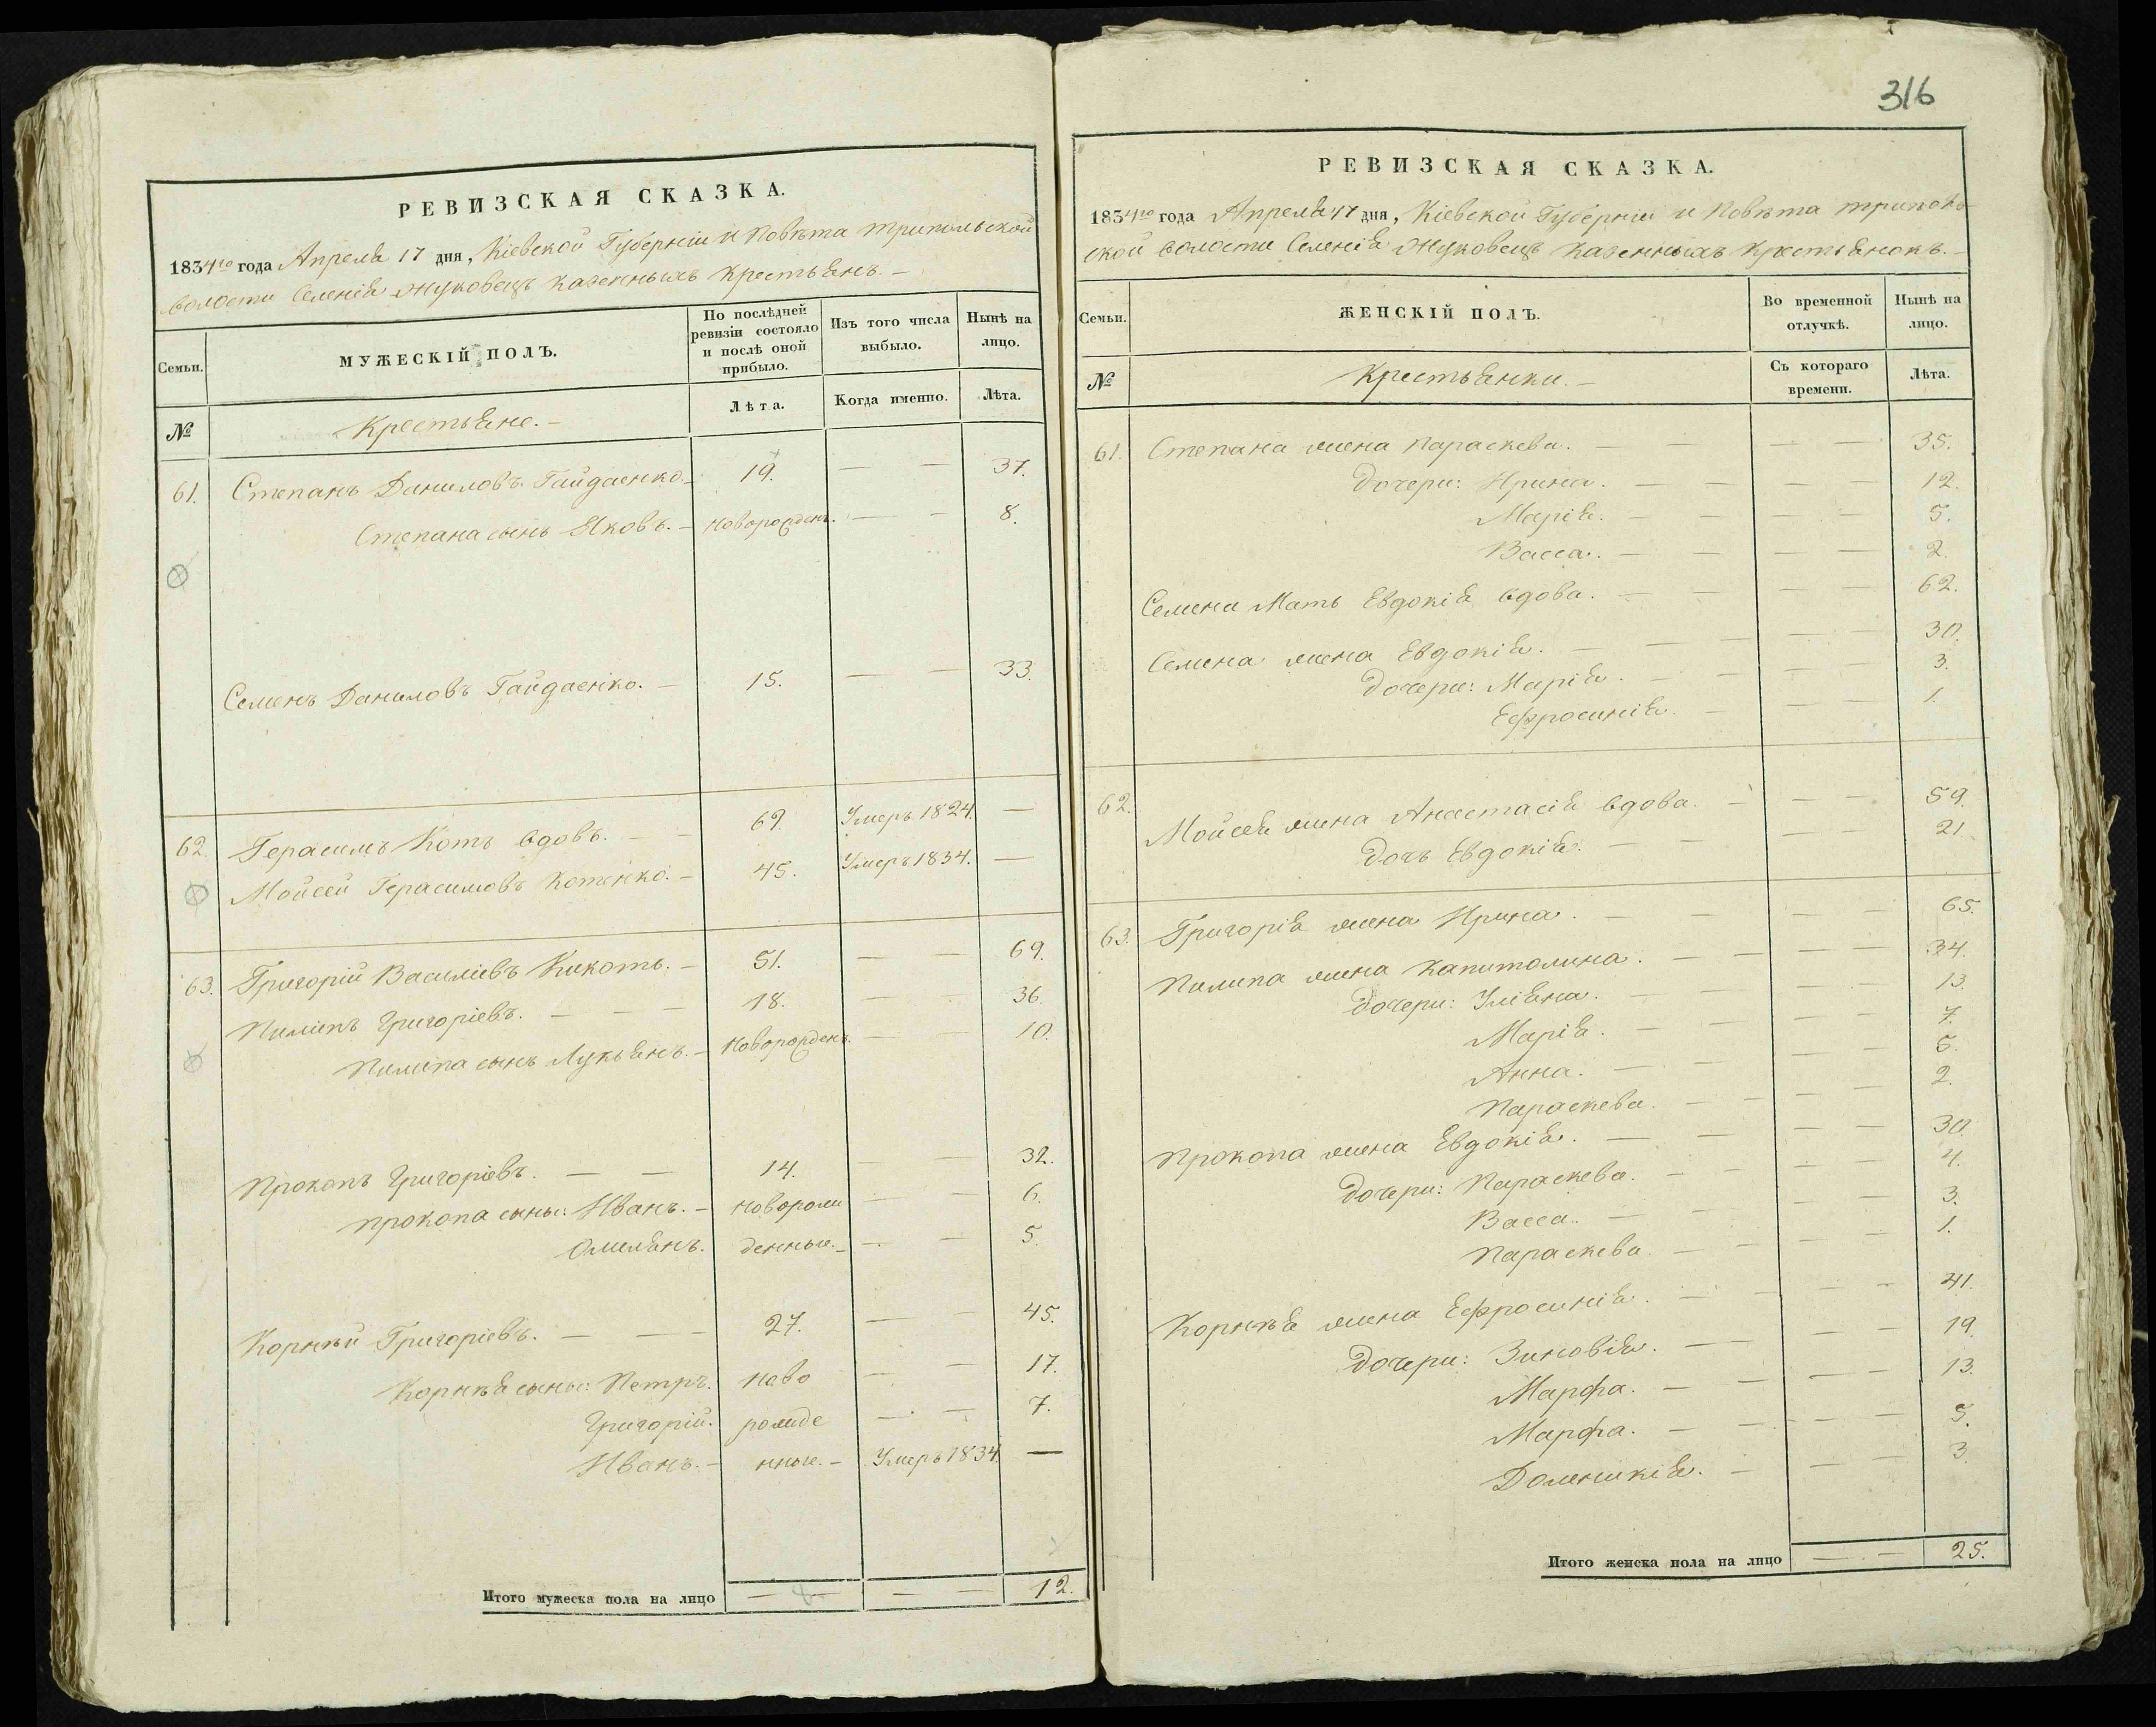 РЕВИЗСКАЯ СКАЗКА.
1834го года Апреля 17 дня, Кіевской Губерніи и Повѣта трипольской
волости Селенія Жуковецъ казенныхъ крестьянъ.—
Семьи.
МУЖЕСКІЙ ПОЛЪ.
По послѣдней ревизіи состояло и послѣ оной прибыло.
Изъ того числа выбыло.
Нынѣ на лицо.
№
Крестьяне.—
Лѣта.
Когда именно.
Лѣта.
61. Степанъ Даниловъ Гайдаенко.— 19. — — 37.
Степана сынъ Яковъ.— новорожденъ. — — 8.
Семенъ Даниловъ Гайдаенко.— 15. — — 33.
62. Герасимъ Котъ вдовъ. — — 69. Умеръ 1824. —
Мойсей Герасимовъ Котенко.— 45. Умеръ 1834. —
63. Григорій Василіевъ Кикоть.— 51. — — 69.
Пилипъ Григоріевъ. — — — 18. — — 36.
Пилипа сынъ Лукьянъ.— Новорожденъ. — — 10.
Прокопъ Григоріевъ. — — 14. — — 32.
прокопа сыны: Иванъ.— Еоворож — — 6.
Омельянъ. денные.— — — 5.
Корнѣй Григоріевъ. — — — 27. — — 45.
Корнѣя сыны: Петръ. Ново — — 17.
Григорій. рожде — — 7.
Иванъ.— нные.— Умеръ 1834. —
Итого мужеска пола на лицо — — — — 12.
316
РЕВИЗСКАЯ СКАЗКА.
1834го года Апреля 17 дня, Кіевской Губерніи и Повѣта триполь-
ской волости Селенія Жуковецъ казенныхъ крестьянокъ.—
Семьи.
ЖЕНСКІЙ ПОЛЪ.
Во временной отлучкѣ.
Нынѣ на лицо.
№
Крестьянки.—
Съ котораго времени.
Лѣта.
61. Степана жена параскева. — — — — 35.
Дочери: Ирина. — — — — 12.
Марія. — — — — 5.
Васса. — — — — 2.
Семена Мать Евдокія вдова. — — — — 62.
Семена жена Евдокія. — — — — 30.
Дочери: Марія. — — — — 3.
Ефросинія. — — — 1.
62. Мойсея жена Анастасія вдова. — — — 59.
Дочь Евдокія. — — — — 21
63. Григорія жена Ирина. — — — — 65.
Пилипа жена Капитолина. — — — — 34.
Дочери: Уліяна. — — — — 13.
Марія. — — — — 7.
Анна. — — — — 5.
Параскева. — — — — 2.
Прокопа жена Евдокія. — — — — 30
Дочери: Параскева. — — — — 4.
Васса. — — — — 3.
Параскева. — — — — 1.
Корнѣя жена Ефросинія. — — — — 41.
Дочери: Зиновія. — — — — 19.
Марфа. — — — — 13.
Марфа. — — — — 5.
Доменикія. — — — 3.
Итого женска пола на лицо — — 25.